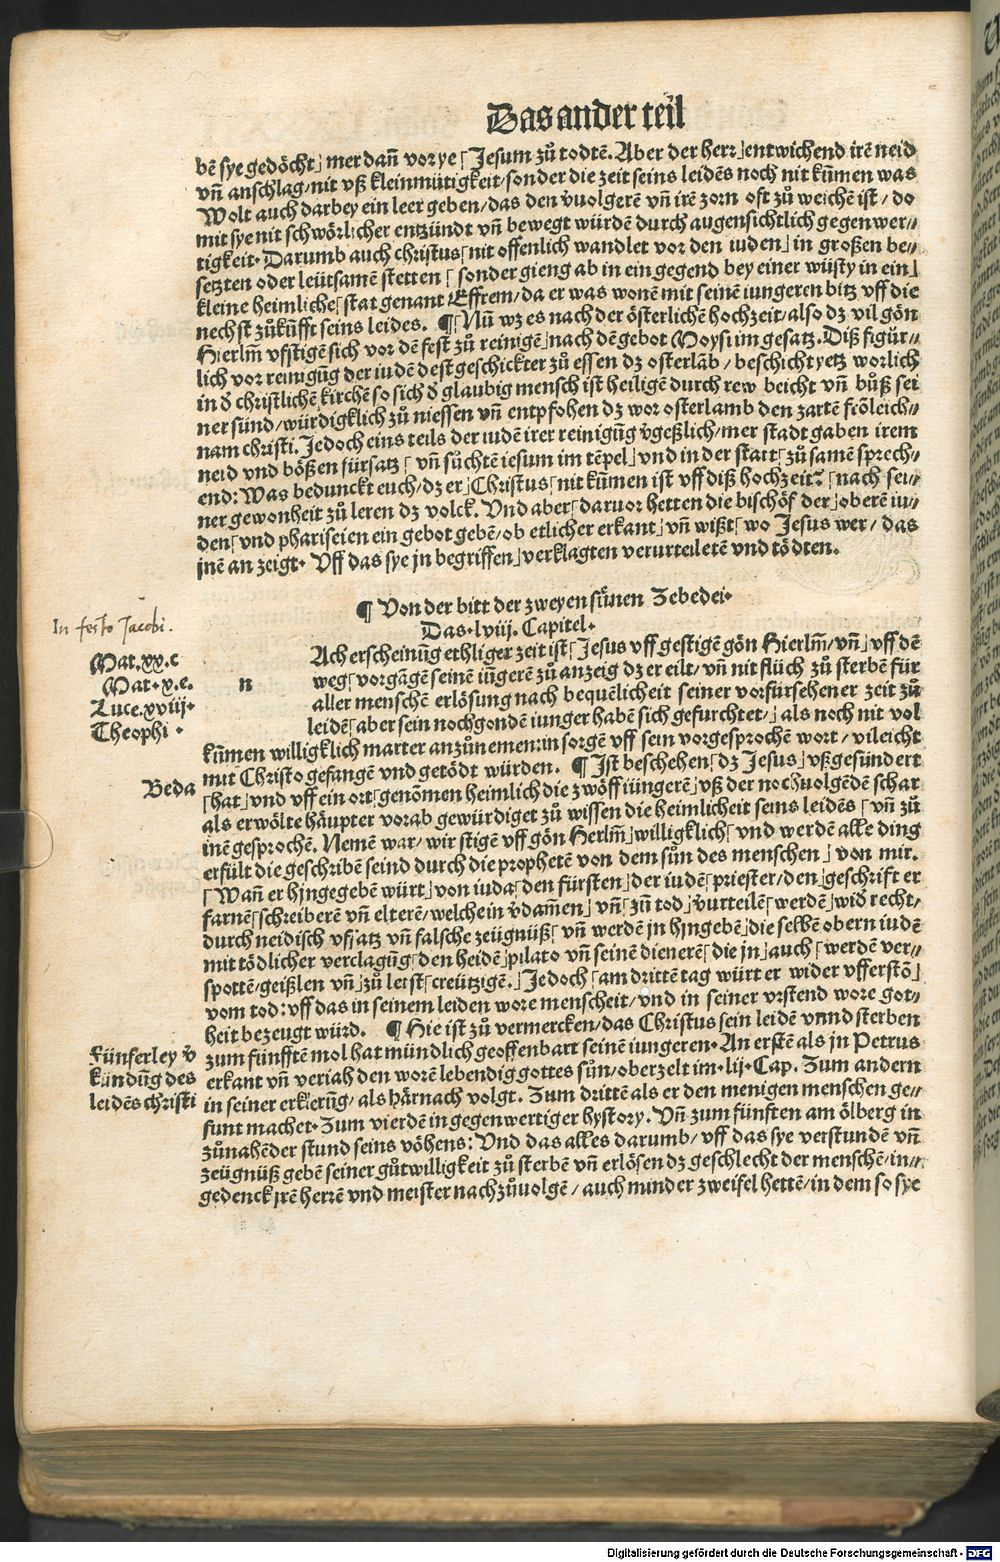 Das ander teil
bē sye gedöcht⌋ mer dañ vor ye⌈ Jesum zů todtē. Aber der herr⌋ entwichend irē neid
vñ anschlag/nit vß kleinmütigkeit/sonder die zeit seins leidēs noch nit kūmen was
Wolt auch darbey ein leer geben/das den v̄uolgerē vñ irē zorn oft zů weichē ist/do
mit sye nit schwörlicher entzündt vñ bewegt würdē durch augensichtlich gegenwer//
tigkeit. Darumb auch christus⌈nit offenlich wandlet vor den iuden⌋ in großen be//
setzten oder leütsamē stetten⌈ sonder gieng ab in ein gegend bey einer wüsty in ein⌋
kleine heimliche⌈stat genant Effrem/da er was wonē mit seinē iungeren bitz vff die
nechst zůkūfft seins leides. ¶⌈Nū wz es nach der österlichē hochzeit/also dz vil gön
Hierlm̄ vfstigē sich vor dē fest zů reinigē⌋nach dē gebot Moysi im gesatz. Diß figür//
lich vor reinigūg der iudē dest geschickter zů essen dz osterlāb/beschicht yetz worlich
in d̄ christlichē kirchē so sich d̄ glaubig mensch ist heiligē durch rew beicht vñ bůß sei
ner sünd/würdigklich zů niessen vñ entpfohen dz wor osterlamb den zartē frōleich//
nam christi. Jedoch eins teils der iudē irer reinigūg v̄geßlich/mer stadt gaben irem
neid vnd bößen fürsatz⌈ vñ sůchtē iesum im tēpel⌋ vnd in der statt⌈ zů samē sprech//
end: Was bedunckt euch/dz er⌋ Christus⌈nit kūmen ist vff diß hochzeit? ⌈nach sei//
ner gewonheit zů leren dz volck. Vnd aber⌈ daruor hetten die bischöf der⌋oberē iu//
den⌈vnd phariseien ein gebot gebē/ob etlicher erkant⌋ vñ wißt⌈ wo Jesus wer/das
jnē an zeigt. Vff das sye jn begriffen⌋ verklagten verurteiletē vnd tödten.
¶ Von der bitt der zweyen sūnen Zebedei.
Das.lviii. Capitel.
In festo Jacobi.
Mat.xx.c
Mat.v.e.
Luce.xviij.
Theophi.
n
Ach erscheinūg ethliger zeit ist⌈Jesus vff gestigē gön Hierlm̄/vñ⌋ vff dē
weg⌈vorgāgē seinē iūgerē zů anzeig dz er eilt/vñ nit flüch zů sterbē für
aller menschē erlösung nach bequēlicheit seiner vorfürsehener zeit zů
leidē⌈aber sein nochgondē iunger habē sich gefurchtet/⌋als noch nit vol
kūmen willigklich marter anzůnemen:in sorgē vff sein vorgesprochē wort/vileicht
Beda
mit Christo gefangē vnd getödt würden. ¶⌈Ist beschehen⌈dz Jesus⌋vßgesündert
⌈hat⌋vnd vff ein ort⌈genōmen heimlich die zwöff iüngerē⌋vß der nochuolgēdē schar
als erwölte häupter vorab gewürdiget zů wissen die heimlicheit seins leidēs⌈vñ zů
inē gesprochē. Nemē war/wir stigē vff gön Herlm̄⌋willigklich⌈vnd werdē alle ding
erfült die geschribē seind durch die prophetē von dem sůn des menschen⌋von mir.
⌈Wañ er hjngegebē würt⌋von iuda⌈den fürsten⌋der iudē⌈priester/den⌋geschrift er
farnē⌈schreiberē vñ elterē/welche in v̄dam̄en⌋vñ⌈zū tod⌋v̄urteilē⌈werdē⌋wid̄ recht/
durch neidisch vfsatz vñ falsche zeügnüß⌈vñ werdē jn hjngebē⌋die selbē obern iudē
mit tödlicher verclagūg⌈den heidē⌋pilato vñ seinē dienerē⌈die jn⌋auch⌈werdē ver//
spottē/geißlen vñ⌋zů letst⌈creützigē.⌋Jedoch⌈am drittē tag würt er wider vfferstō⌋
vom tod:vff das in seinem leiden wore menscheit/vnd in seiner vrstend wore got//
heit bezeugt würd. ¶⌈Hie ist zů vermercken/das Christus sein leidē vnnd sterben
Fünferley v̄
kündūg des
leidēs christi
zum fünfftē mol hat mündlich geoffenbart seinē iungeren. An erstē als jn Petrus
erkant vñ veriah den worē lebendig gottes sūn/oberzelt im.lij.Cap. Zum andern
in seiner erklerūg/als hårnach volgt. Zum drittē als er den menigen menschen ge//
sunt machet. Zum vierdē in gegenwertiger hystory. Vñ zum fünften am ölberg in
zůnahēder stund seins vöhens: Vnd das alles darumb/vff das sye verstundē vñ
zeügnüß gebē seiner gůtwilligkeit zů sterbē vñ erlösen dz geschlecht der menschē/in//
gedenck jrē herrē vnd meister nachzůuolgē/auch minder zweifel hettē/in dem so sye
Digitalisierung gefördert durch die Deutsche Forschungsgemeinschaft - DFG